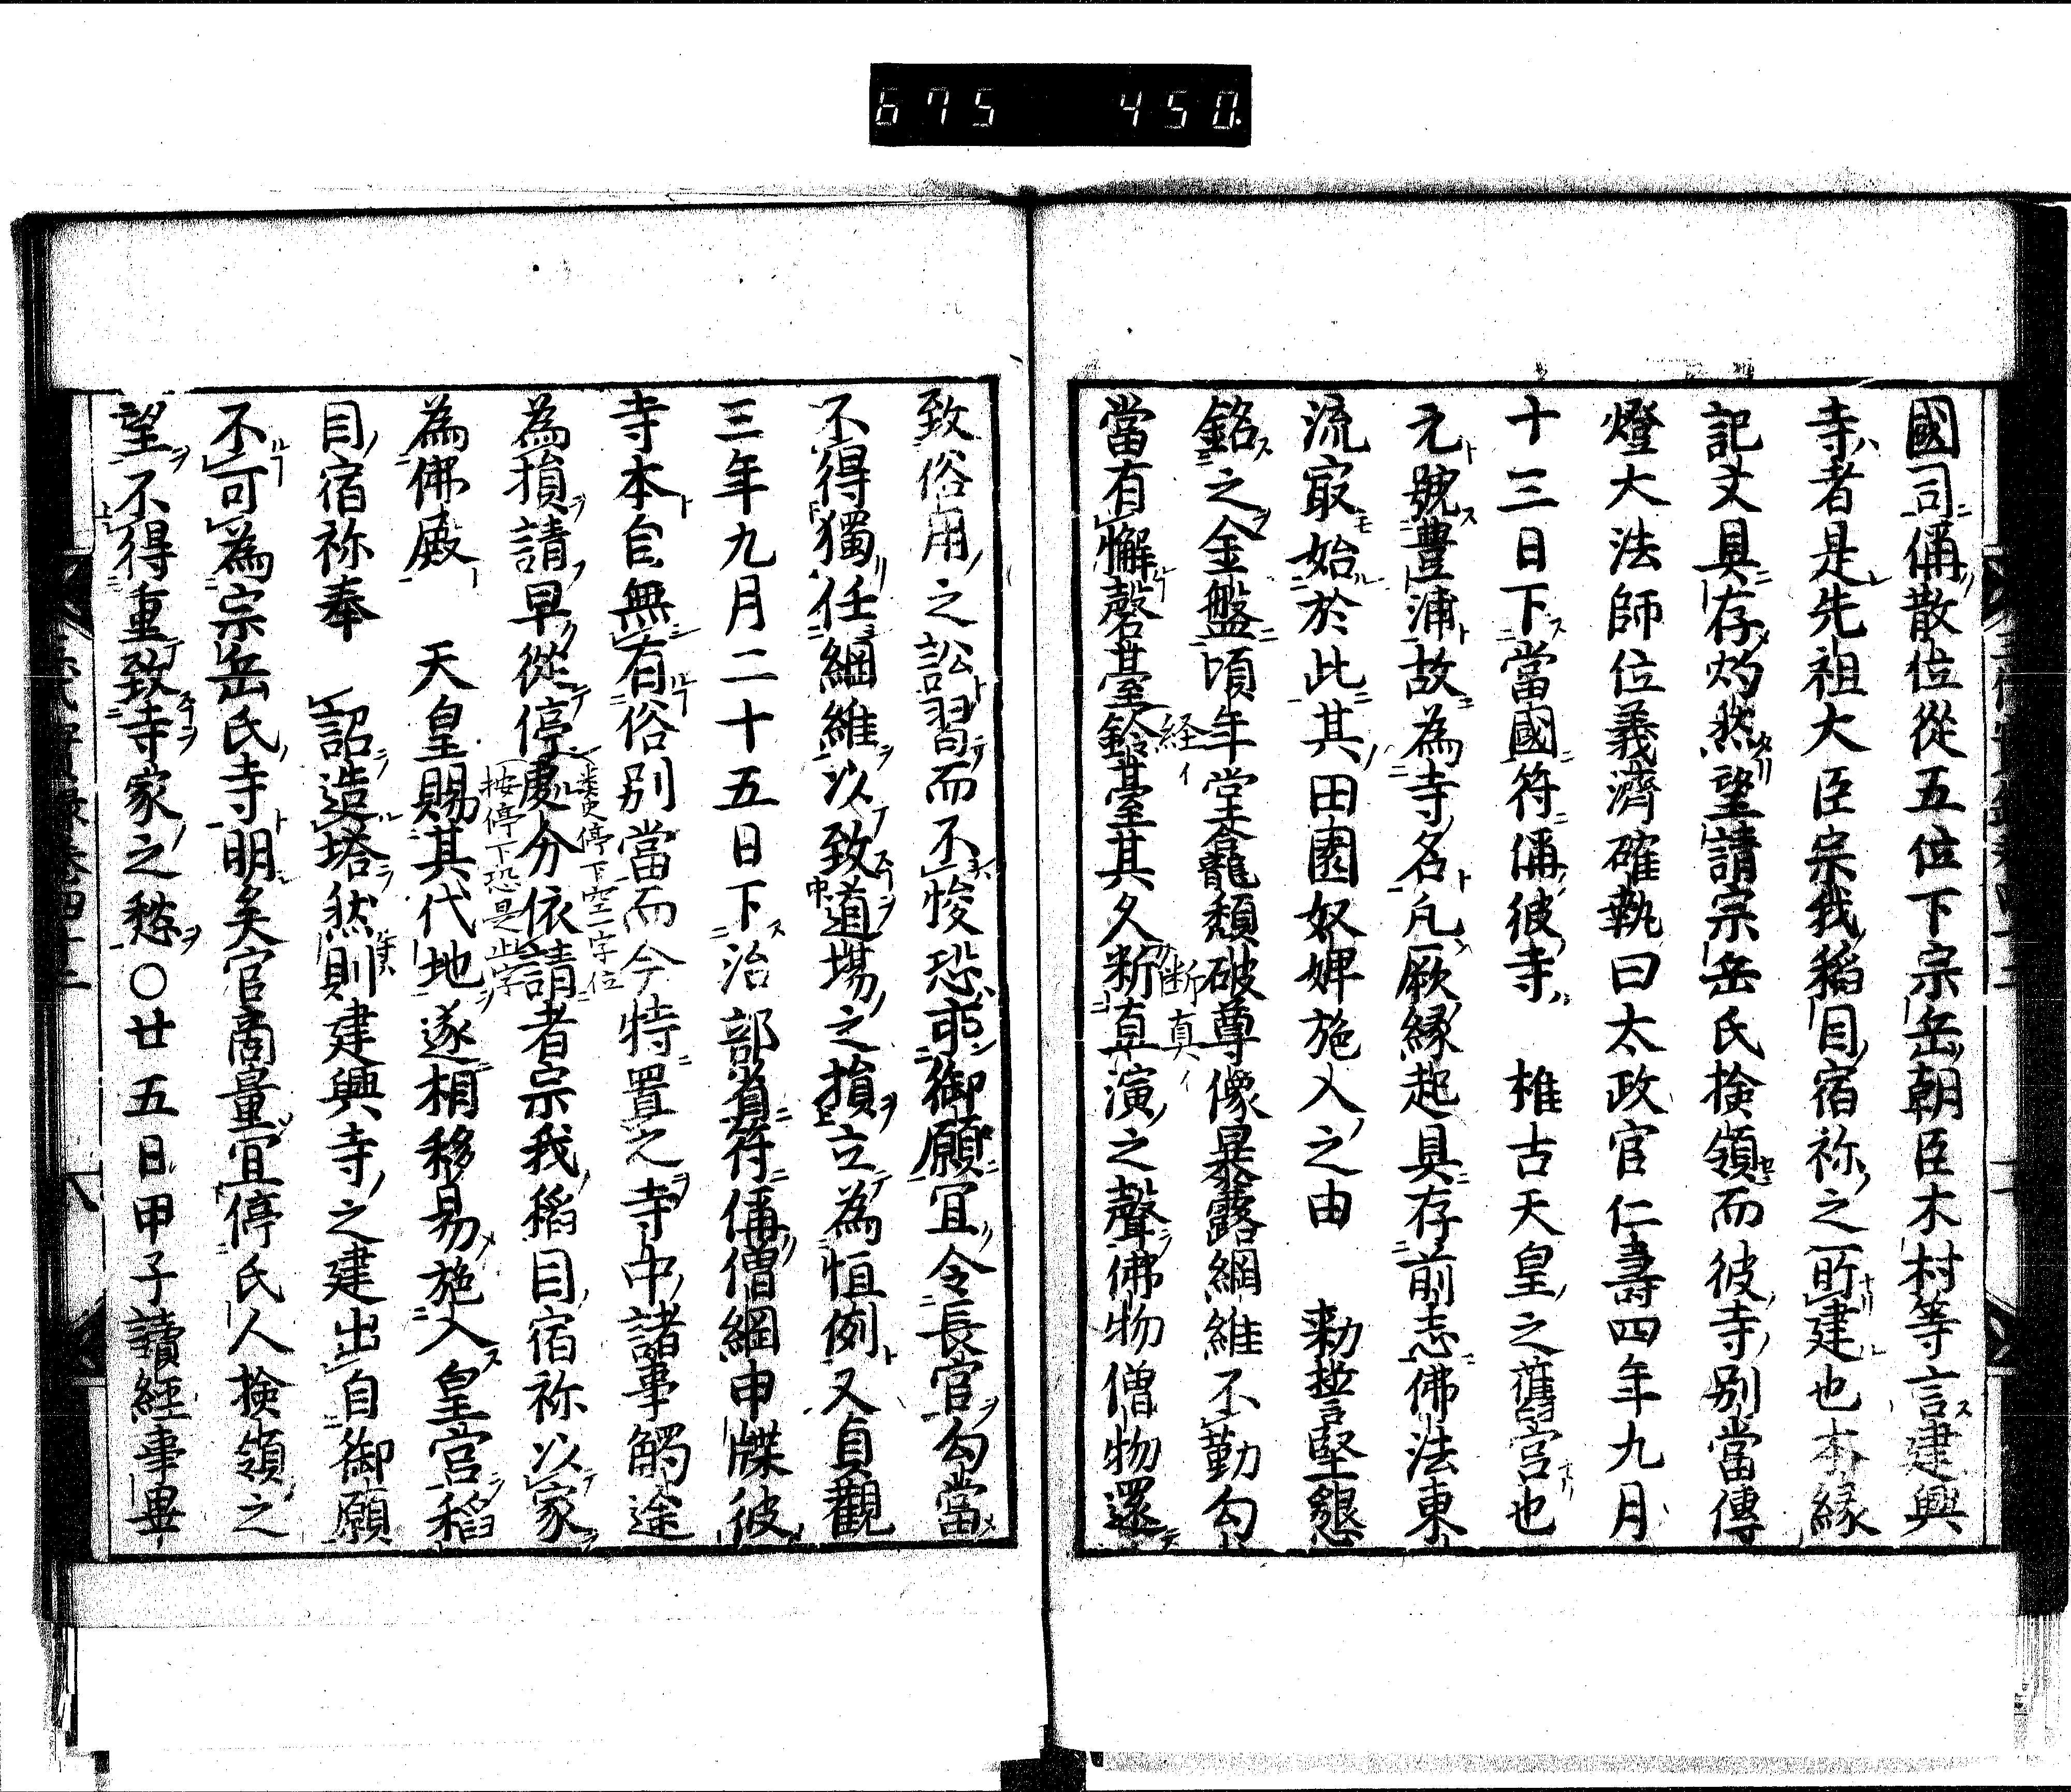 675 450.
國司偁散位從五位下宗岳朝臣木村等言建興
寺者是先祖大臣宗我稻目宿祢之所建也本緣
記文具存灼然望請宗岳氏檢領而彼寺別當傳
燈大法師位義濟確執曰太政官仁壽四年九月
十三日下當國符偁彼寺 推古天皇之舊宮也
元號豊浦故為寺名凡厥緣起具存前志佛法東
流冣始於此其田園奴婢施入之由 勅誓堅懇
銘之金盤頃年堂龕頽破尊像暴露綱維不勤勾
経イ
断真イ
當有懈磬基臺鈴臺其久断草演之聲佛物僧物還
致俗用之訟習而不悛恐乖御願宜令長官勾當
不得獨任綱維以致道場之損立為恒例又貞觀
三年九月二十五日下治部省符偁僧綱申牒彼
寺本自無有俗別當而今特置之寺中諸事觸途
為損請早從停處分依請者宗我稻目宿祢以家
類史停下空一字位
按停下恐是止字
為佛殿 天皇賜其代地遂相移易施入皇宮稻
目宿祢奉 詔造塔然則建興寺之建出自御願
不可為宗岳氏寺明矣官商量宜停氏人檢領之
望不得重致寺家之愁○廿五日甲子讀經事畢
八